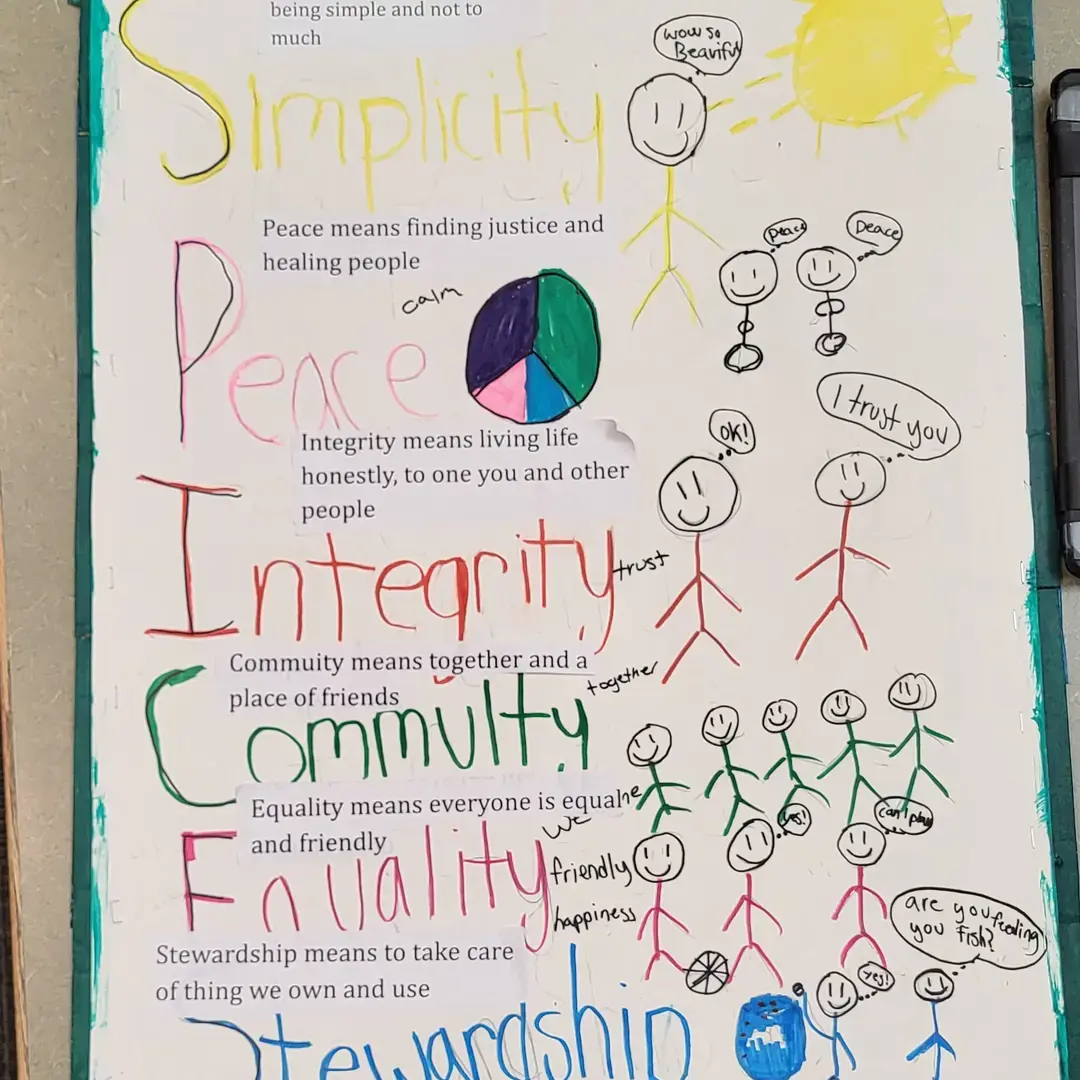 being simple and not to
much
wow so
Beavifuf
Simplicity
Peace means finding justice and
healing people
peace
Peace
calm
Peace
Integrity means living life
honestly, to one you and other
people
OK!
I trust you
Integrity
trust
Commuity means together and a
place of friends
together
Commuity
Equality means everyone is equal
and friendly
we
yes!
can I play
Equality
friendly
happiness
Stewardship means to take care
of thing we own and use
are you feeding
you fish?
yes!
Stewardship